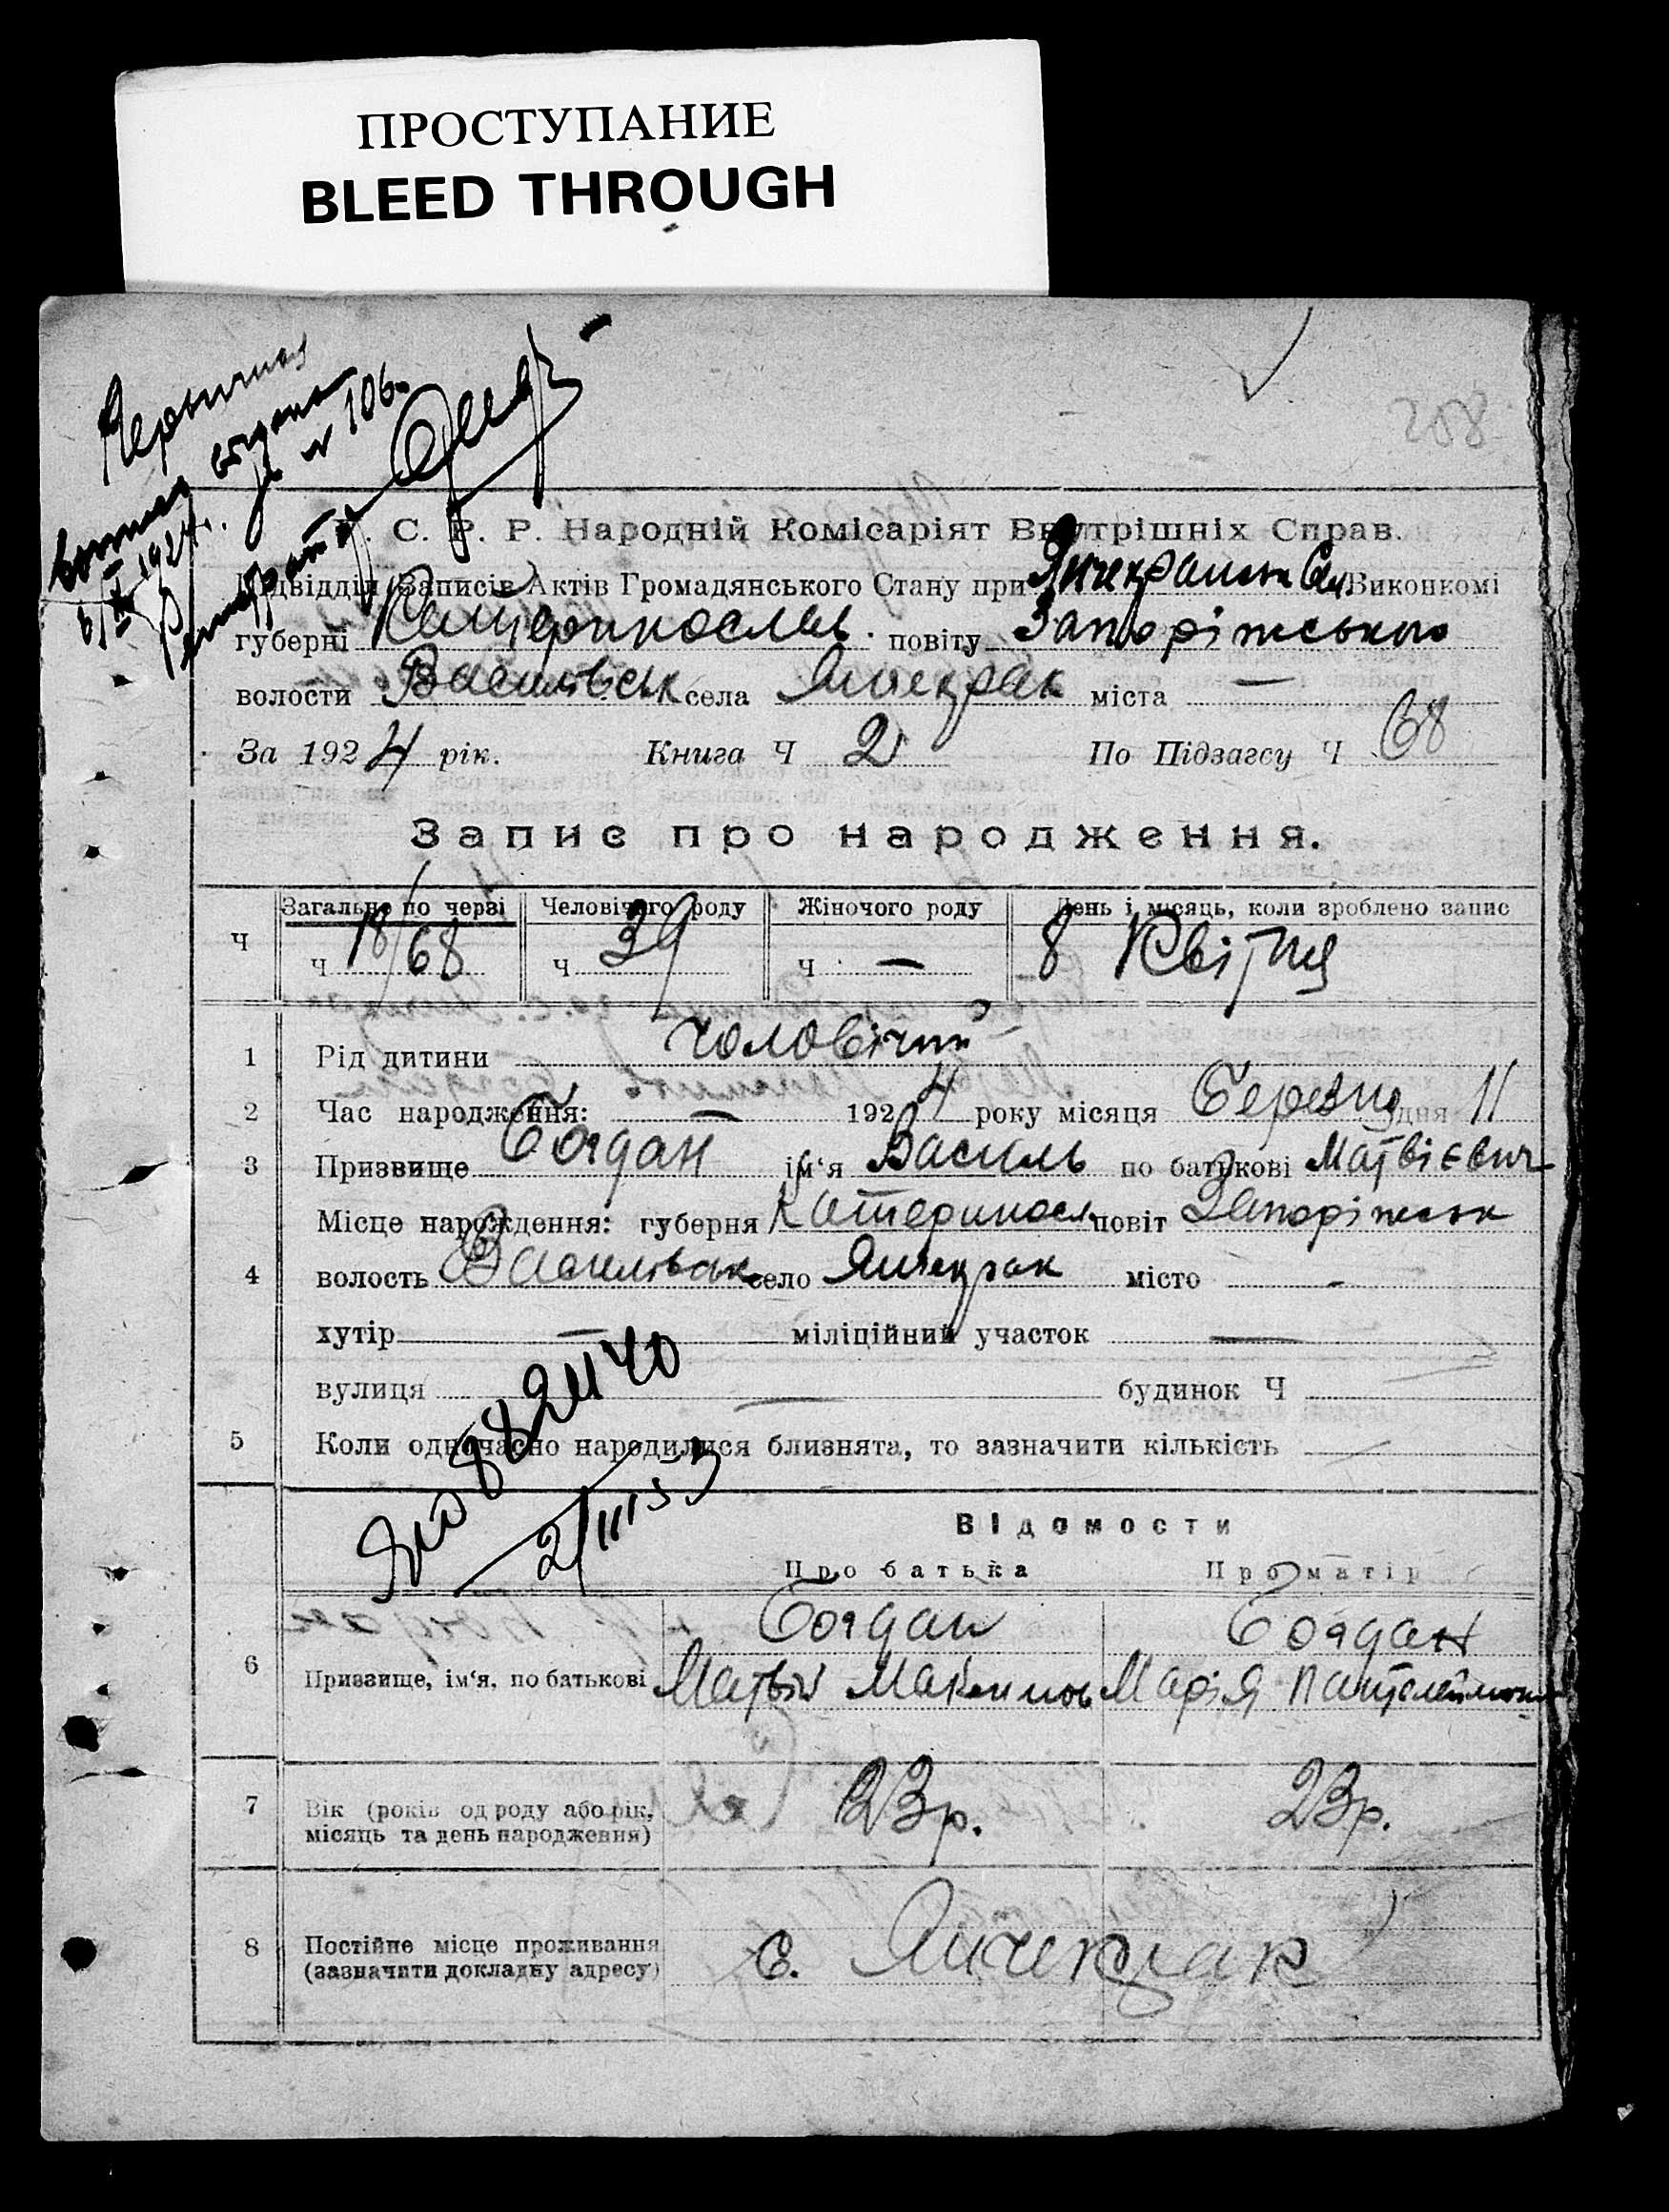 ПРОСТУПАНИЕ
BLEED THROUGH
258
С. Р. Р. Народній Комісаріят Внутрішніх Справ.
Підвідділ Записів Актів Громадянського Стану при Виконкомі
губерні Катеринослав. повіту Запоріжського
волости Василівськ села Янчекрак міста —
За 1924 рік. Книга Ч 2 По Підзагсу Ч 68
Запис про народження.
Ч Загальне по черзі Человічого роду Жіночого роду День і місяць, коли зроблено запис
Ч 18/68 Ч 39 Ч — 8 Квітня
1 Рід дитини чоловічий
2 Час народження: — 1924 року місяця Березня дня 11
3 Призвище Богдан ім'я Василь по батькові Матвієвич
Місце народження: губерня Катериносл повіт Запоріжськ
4 волость Василівськ село Янчекрак місто -
хутір — міліційний участок —
вулиця — будинок Ч
5 Коли одночасно народилися близнята, то зазначити кількість
882440
2/III 53
Відомости
Про батька Про матір
Богдан Богдан
6 Призвище, ім'я, по батькові Матвій Максимов Марія Пантелеймон
7 Вік (років од роду або рік, 23 р. 23 р.
місяць та день народження)
8 Постійне місце проживання с. Янчекрак
(зазначити докладну адресу)